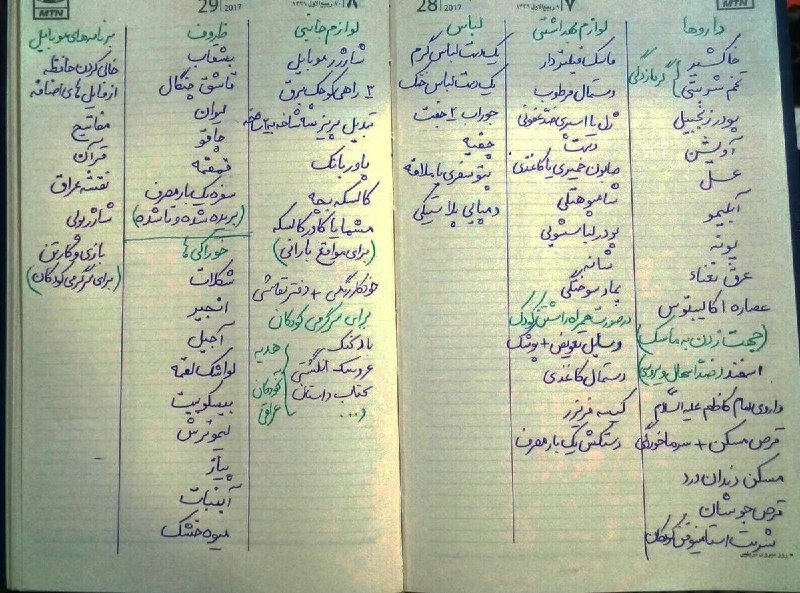 MTN
28 2017
۷ ربیع‌الاول ۱۴۳۹
داروها
خاکشیر
تخم شربتی
گرمازدگی
پودر زنجبیل
آویشن
عسل
آبلیمو
پونه
عرق نعناء
عصاره اکالیپتوس
(جهت زدن به ماسک)
اسفند (ضد اسهال ویروسی)
داروی امام کاظم علیه السلام
قرص مسکن + سرماخوردگی
مسکن دندان درد
قرص جوشان
شربت استامینوفن کودکان
لوازم بهداشتی
ماسک فیلتردار
دستمال مرطوب
ژل یا اسپری ضدعفونی
دست
صابون خمیری یا کاغذی
شامپو هتلی
پودر لباسشویی
شانه
پماد سوختگی
درصورت همراه داشتن کودک
وسایل تعویض + پوشک
دستمال کاغذی
کیسه فریزر
دستکش یک بار مصرف
لباس
یک دست لباس گرم
یک دست لباس خنک
جوراب ۲ جفت
چفیه
پتو سفری یا ملافه
دمپایی پلاستیکی
29 2017
۸ ربیع‌الاول ۱۴۳۹
MTN
لوازم جانبی
شارژر موبایل
۳ راهی کوچک برق
تبدیل پریز سه شاخه به ۲ شاخه
پاور بانک
کالسکه بچه
مشما یا کاور کالسکه
(برای مواقع بارانی)
خودکار رنگی + دفتر نقاشی
برای سرگرمی کودکان
بادکنک
عروسک انگشتی
کتاب داستان
و...
هدیه
کودکان
عراقی
ظروف
بشقاب
قاشق چنگال
لیوان
چاقو
قمقمه
سفره یک بار مصرف
(بریده شده و تا شده)
خوراکی ها
شکلات
انجیر
آجیل
لواشک لقمه
بیسکویت
لیموترش
پیاز
آبنبات
میوه خشک
برنامه‌های موبایل
خالی کردن حافظه
از فایل های اضافه
مفاتیح
قرآن
نقشه عراق
شارژ پولی
بازی و کارتن
(برای سرگرمی کودکان)